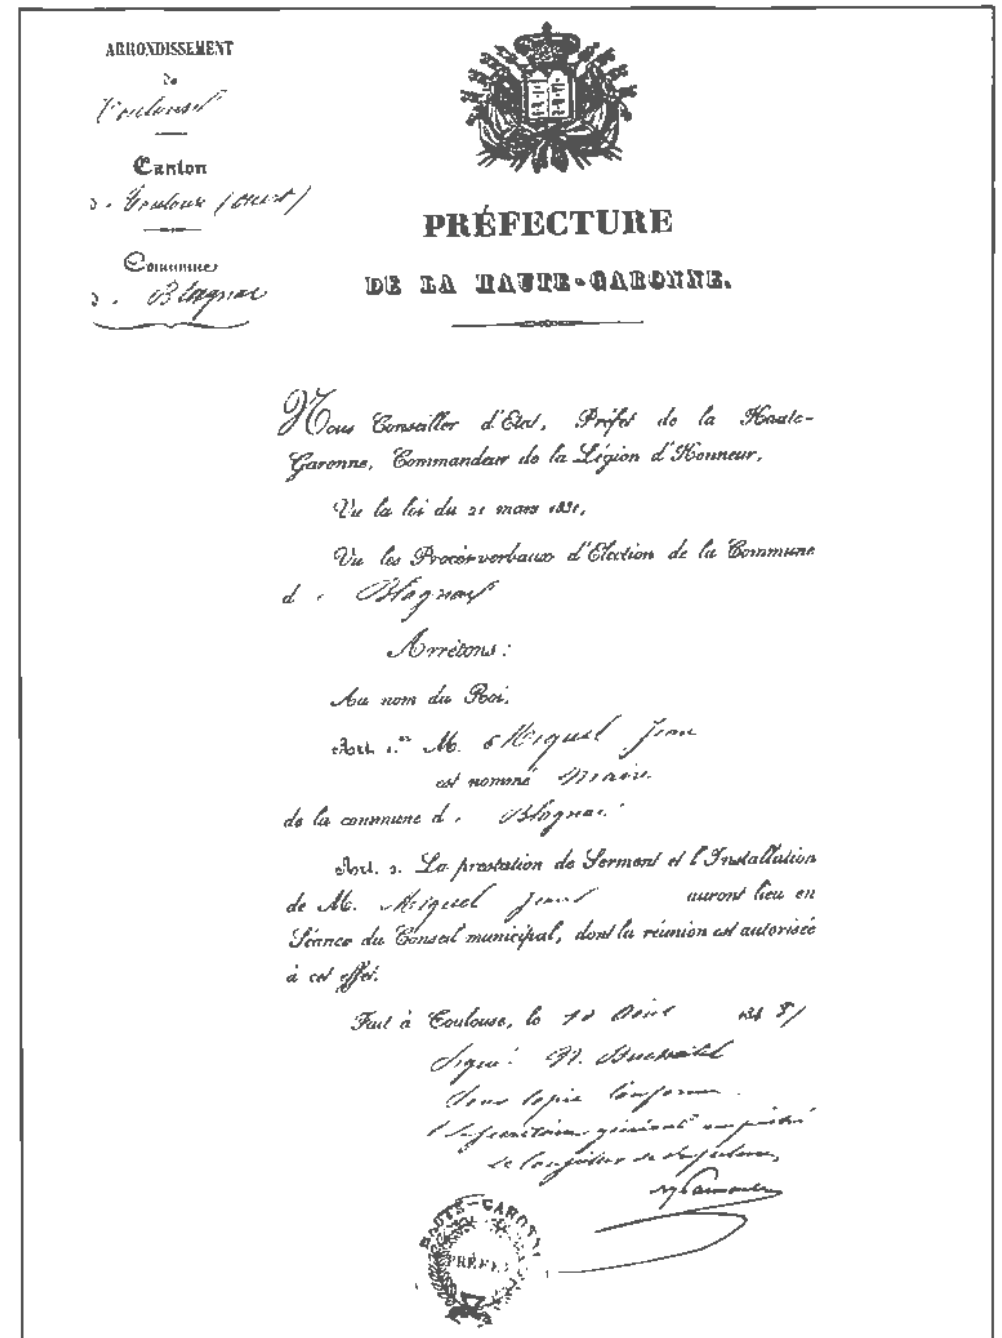 ARRONDISSEMENT
de
Toulouse
Canton
d. Toulouse (ouest)
Commune
d. Blagnac
PRÉFECTURE
DE LA HAUTE-GARONNE.
Nous Conseiller d'Etat, Préfet de la Haute-
Garonne, Commandeur de la Légion d'Honneur,
Vu la loi du 21 mars 1831,
Vu les Procès-verbaux d'Election de la Commune
d. Blagnac
Arrêtons :
Au nom du Roi,
Art. 1.er M. Miquel Jean
est nommé Maire
de la commune d. Blagnac
Art. 2. La prestation de Serment et l'Installation
de M. Miquel Jean auront lieu en
Séance du Conseil municipal, dont la réunion est autorisée
à cet effet.
Fait à Toulouse, le 184
Signé: N.
Pour Copie Conforme
Secrétaire général empêché
Le Conseiller de Préfecture,
HAUTE-GARONNE
PRÉFET